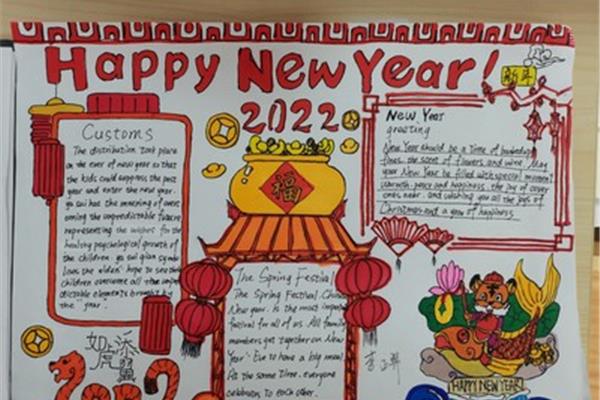 Happy New Year!
新年
2022
Customs
The distribution took place
on the eve of new year so that
the kids could suppress the past
year and enter the new year.
ya sui has the meaning of over
coming the unpredictable future
representing the wishes for the
healthy psychological growth of
the children. ya sui qian symbo
lises the elders' hope to see the
children overcome all the unpre
dictable elements brought by
the "year".
New Year
greeting
New Year should be a time of
fines, the scent of flowers and wine. May
your New Year be filled with special moment
warmth, peace and happiness, the joy of cover
ones near, and wishing you all the joys of
Christmas and a year of happiness.
福
The Spring Festival
The Spring Festival, Chinese
New year, is the most important
festival for all of us. All family
members get together on New
Year' Eve to have a big meal.
At the same time, everyone
celebrate to each other.
如虎添翼
2022
李
HAPPY NEW YEAR!